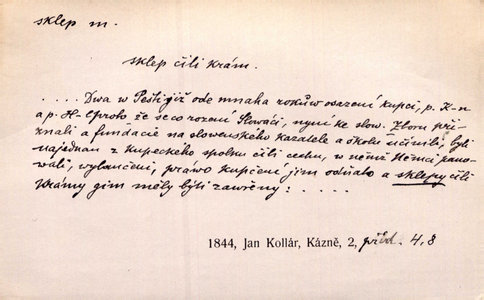 sklep m.
sklep čili krám.
.... Dwa w Pešti giž ode mnoha roků w osazení kupci, p. K-n
a p. H-l proto že se co rození Slowáci, nyní ke slow. Zboru při-
znali a fundácie na slowenského kazatele a školu učinili, byli
najednau z kupeckého spolku čili cechu, w němž Němci pano-
wali, wylaučeni, práwo kupčení jim odňato a sklepy čili
krámy gim měly býti zawřeny: ....
1844, Jan Kollár, Kázně, 2, před. 4, 8